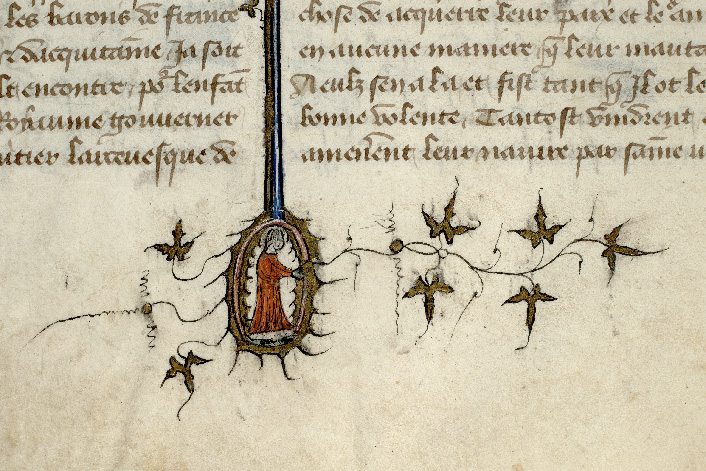 les barons de france
et dacquitaine Ja soit
encontre, por lenfāt
Royaume gouuerner
larceuesque de
chose de acquerre leur paix et le
en aucune maniere q̄ leur
sen ala et fist tant q̄ Il ot le
bonne volente, Tantost vindrent
amenerent leur nauire par